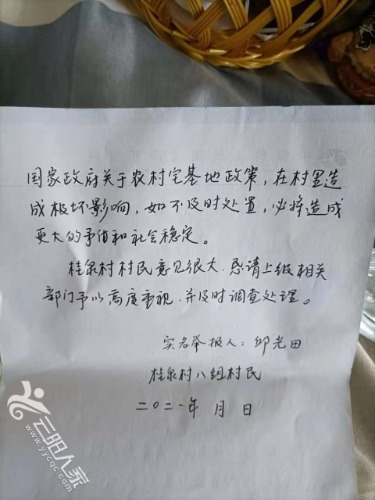 国家政府关于农村宅基地政策，在村里造
成极坏影响，如不及时处置，必将造成
更大的矛盾和社会稳定。
桂泉村村民意见很大，恳请上级相关
部门予以高度重视，并及时调查处理。
实名举报人：邱光田
桂泉村八组村民
二〇二一年 月 日
云阳人家
www.yycqc.com